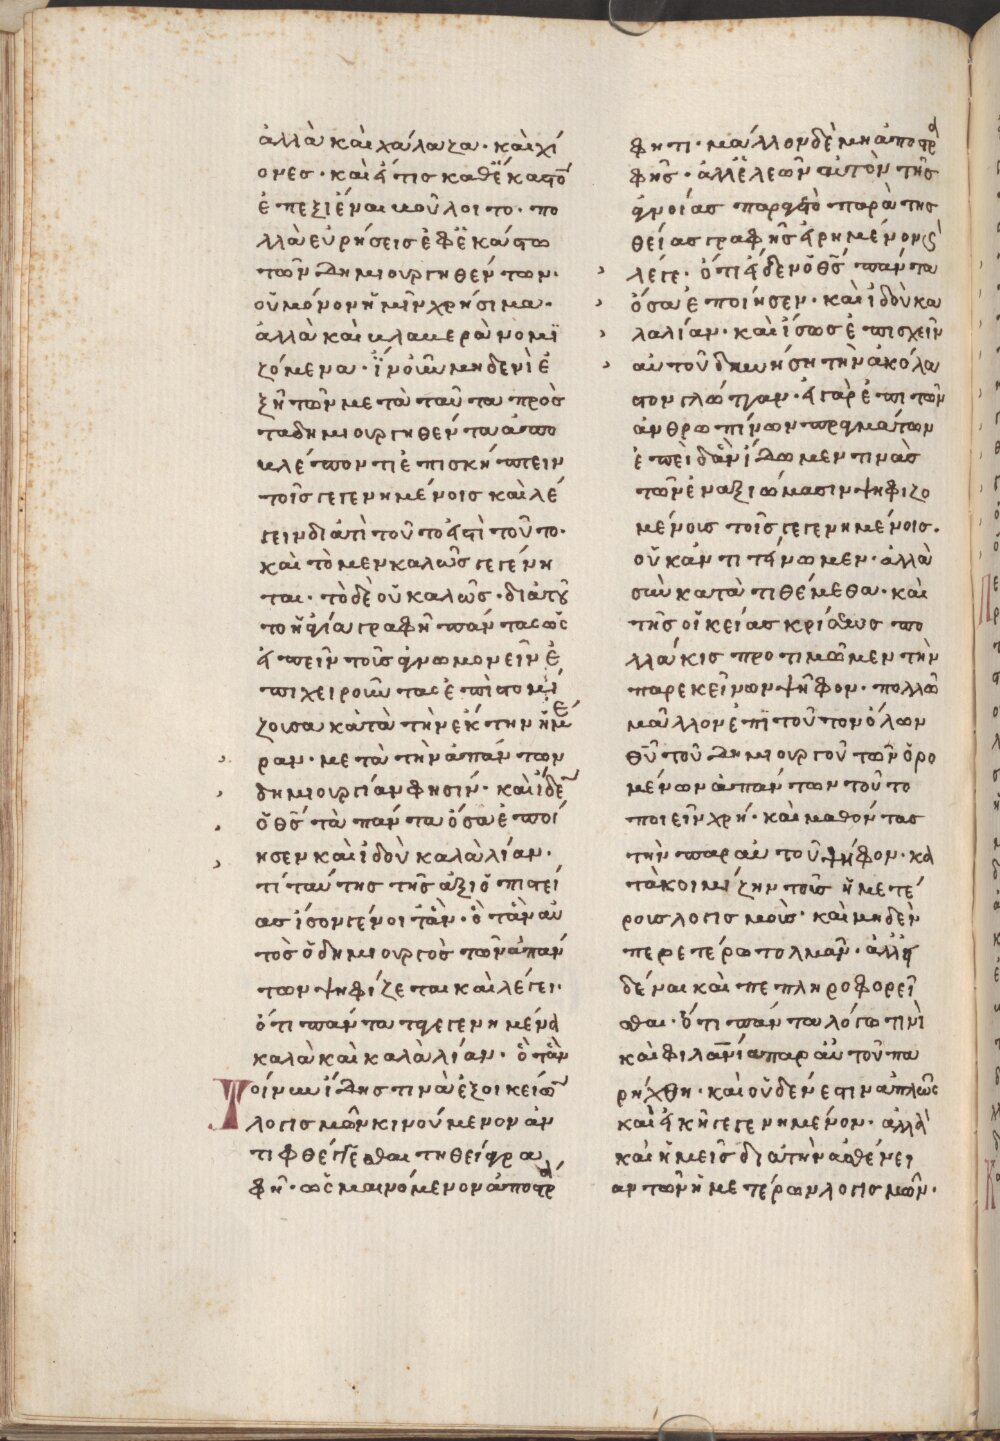 ἀλλὰ καὶ χάλαζα· καὶ χί
ονες· καὶ εἴ τις καθ' ἕκαστο
ἐπεξιέναι βούλοιτο· πο
λλὰ εὑρήσεις ἐφ' ἑκάστω
τῶν δημιουργηθέντων·
οὐ μόνον ἡμῖν χρήσιμα·
ἀλλὰ καὶ βλαβερὰ νομι
ζόμενα· ἵν' οὖν μηδενὶ ἐ
ξῆ τῶν μετὰ ταῦτα πρὸς
τὰ δημιουργηθέντα ἀπο
βλέποντι ἐπισκήπτειν
τοῖς γεγενημένοις καὶ λέ
γειν διατὶ τοῦτο εἰ τὶ τοῦτο·
καὶ τὸ μὲν καλῶς γεγένη
ται· τὸ δὲ οὐ καλῶς· διὰ τοῦ
το ἡ ἁγία γραφὴ πάντας ὡς
εἰπεῖν τοὺς ἀγνωμονεῖν ἐ
πιχειροῦντας ἐπιστομί
ζουσα κατὰ τὴν ἕκτην ἡμέ
ραν· μετὰ τὴν ἁπάντων
δημιουργίαν φησίν· καὶ ἶδεν
ὁ θς τὰ πάντα ὅσα ἐποί
ησεν καὶ ἰδοὺ καλὰ λίαν·
τί ταύτης τῆς ἀξιοπιστεί
ας ἴσον γένοιτ' ἄν· ὅτ' ἂν αὐ
τὸς ὁ δημιουργὸς τῶν ἁπάν
των ψηφίζεται καὶ λέγει·
ὅτι πάντα τὰ γεγενημένα
καλὰ καὶ καλὰ λίαν· ὅτ' ἂν
τοίνυν ἴδης τινὰ ἐξ οἰκείων
λογισμῶν κινούμενον ἀν
τιφθέγγεσθαι τῆ θεία γρα
φῆ· ὡς μαινόμενον ἀποστρά
φητι· μᾶλλον δὲ μὴ ἀποστρα
φῆς· ἀλλ' ἐλεῶν αὐτὸν τῆς
ἀγνοίας παράγαγε τὸ παρὰ τῆς
θείας γραφῆς εἰρημένον καὶ
λέγε· ὅτι εἶδεν ὁ θς πάντα
ὅσα ἐποίησεν· καὶ ἰδοὺ κα
λὰ λίαν· καὶ ἴσως ἐπισχεῖν
αὐτοῦ δυνήση τὴν ἀκόλα
στον γλῶτταν· εἰ γὰρ ἐπὶ τῶν
ἀνθρωπίνων πραγμάτων
ἐπειδὰν ἴδωμεν τινὰς
τῶν ἐν ἀξιώμασιν ψηφιζο
μένοις τοῖς γεγενημένοις·
οὐκ ἀντιτείνωμεν· ἀλλὰ
συγκατατιθέμεθα· καὶ
τῆς οἰκείας κρίσεως πο
λλάκις προτιμῶμεν τὴν
παρ' ἐκείνων ψῆφον· πολλῶ
μᾶλλον ἐπὶ τοῦ τῶν ὅλων
θῦ τοῦ δημιουργοῦ τῶν ὁρο
μένων ἁπάντων τοῦτο
ποιεῖν χρή· καὶ μαθόντας
τὴν παρ' αὐτοῦ ψῆφον· κα
τακοιμίζειν τοῖς ἡμετέ
ροις λογισμοῖς· καὶ μηδὲν
περετέρω τολμᾶν· ἀλλ' εἰ
δέναι καὶ πεπληροφορεῖ
σθαι· ὅτι πάντα λόγω τινὶ
καὶ φιλανία παρ' αὐτοῦ πα
ρήχθη· καὶ οὐδέν ἐστιν ἁπλῶς
καὶ εἰκῆ γεγενημένον· ἀλλὰ
κἂν ἡμεῖς διὰ τὴν ἀσθένει
αν τῶν ἡμετέρων λογισμῶν·